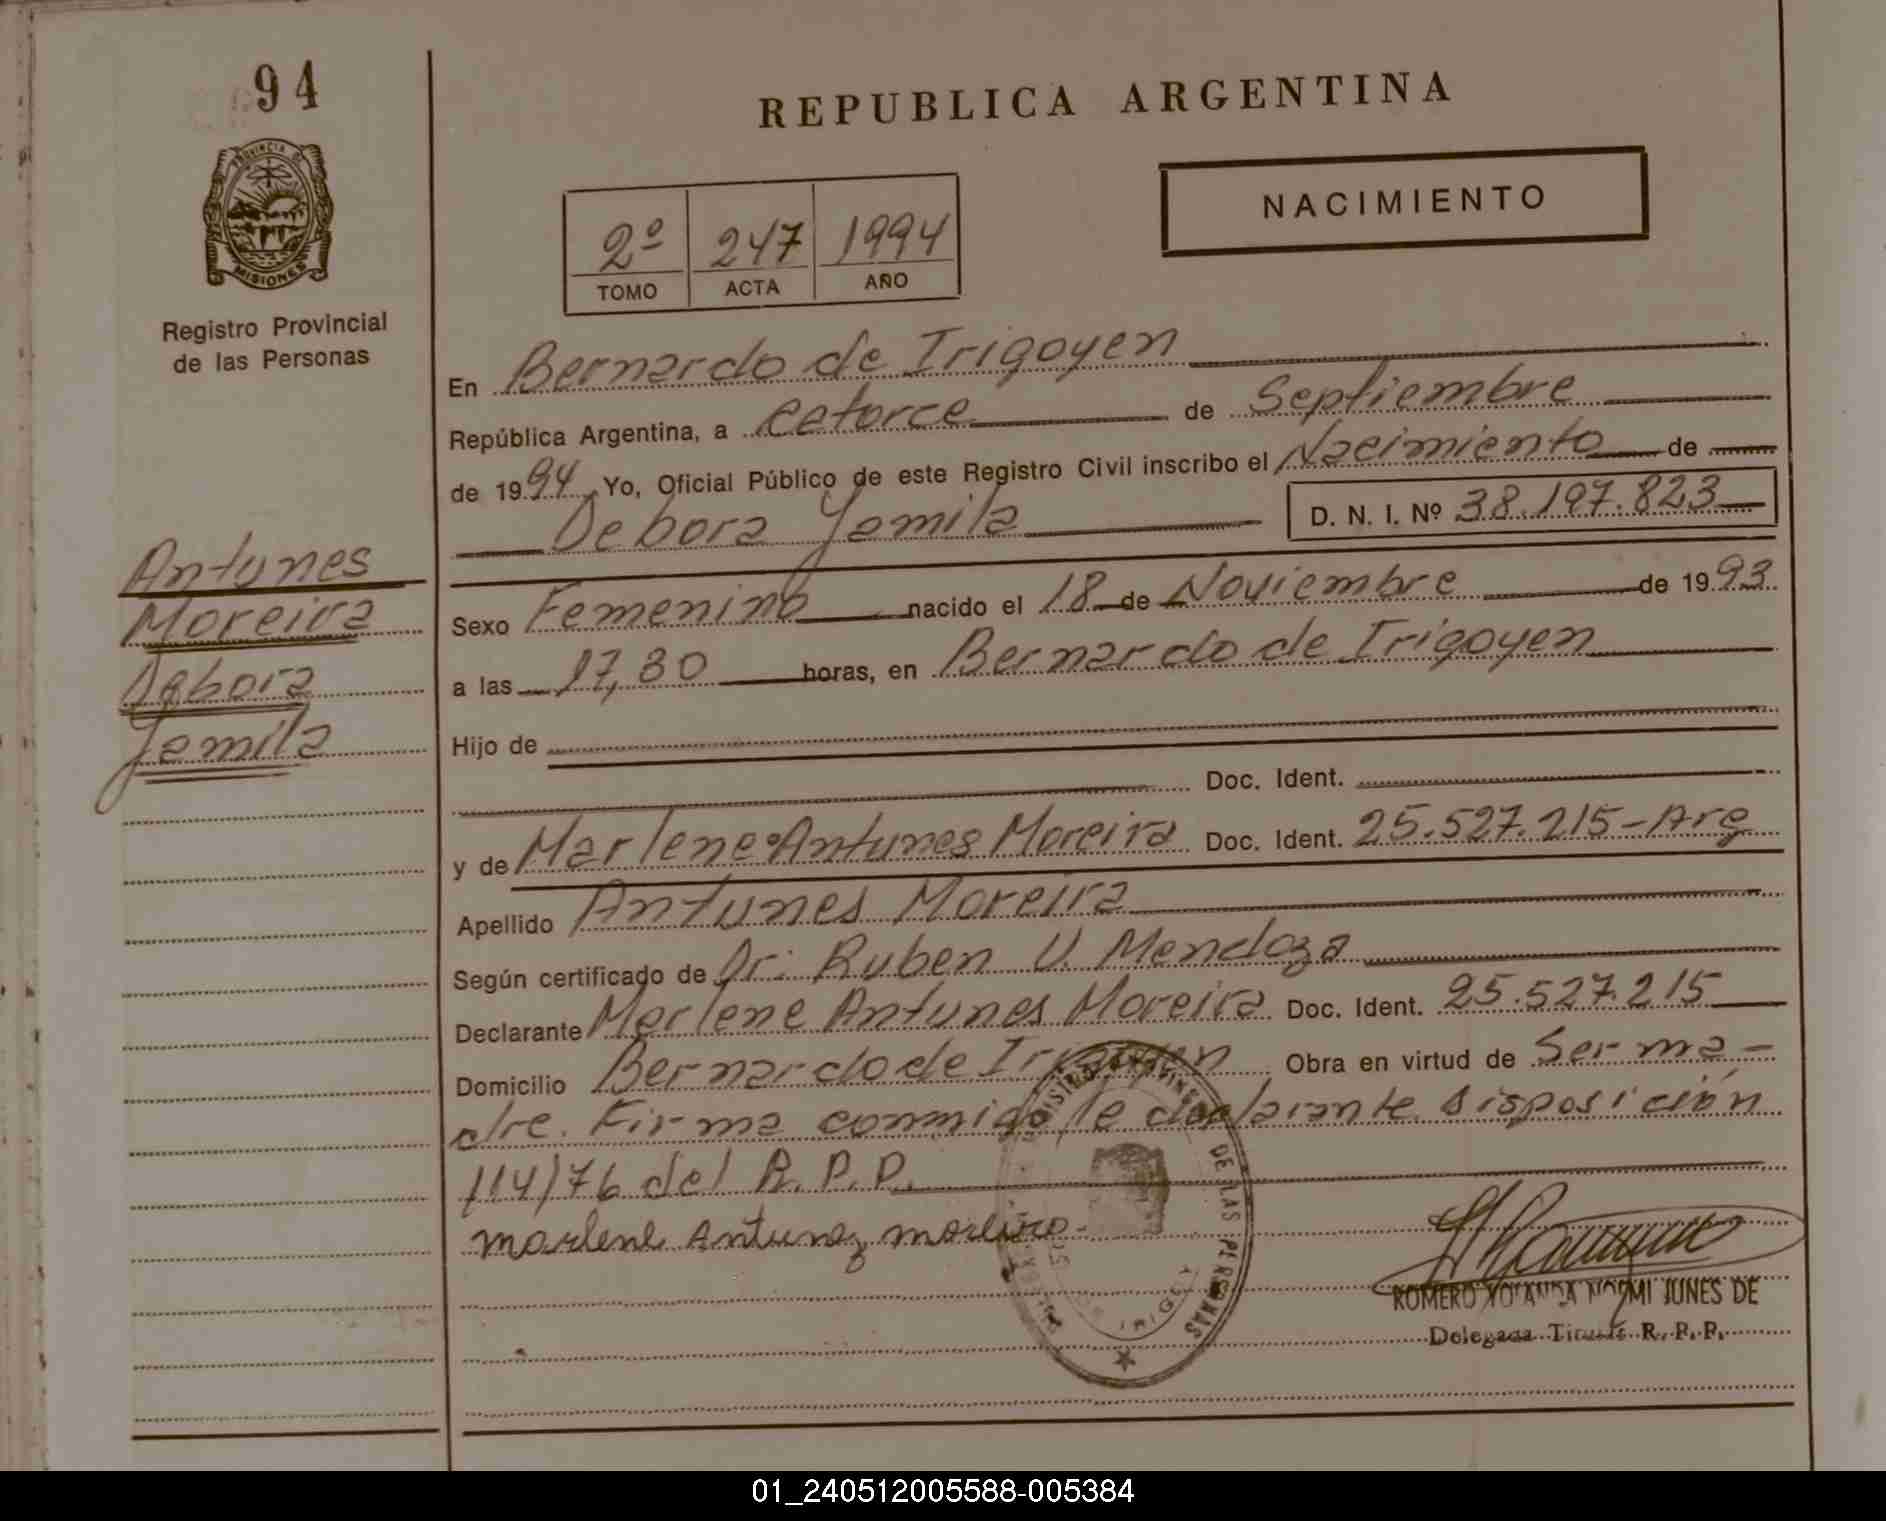 94
PROVINCIA DE
MISIONES
Registro Provincial
de las Personas
REPUBLICA ARGENTINA
NACIMIENTO
2º 247 1994
TOMO ACTA AÑO
En Bernardo de Irigoyen
República Argentina, a catorce de Septiembre
de 1994 Yo, Oficial Público de este Registro Civil inscribo el Nacimiento de
Debora Yamila D. N. I. Nº 38.197.823
Antunes
Moreira
Debora
Yamila
Sexo Femenino nacido el 18 de Noviembre de 1993
a las 17,30 horas, en Bernardo de Irigoyen
Hijo de
Doc. Ident.
y de Marlene Antunes Moreira Doc. Ident. 25.527.215-Arg
Apellido Antunes Moreira
Según certificado de Dr. Ruben V. Mendoza
Declarante Marlene Antunes Moreira Doc. Ident. 25.527.215
Domicilio Bernardo de Irigoyen Obra en virtud de Ser ma-
dre. Firma conmigo la declarante. Disposición
114/76 del R.P.P.
marlene Antunez moreira
DE LAS PERSONAS
ROMERO YOLANDA NOEMI JUNES DE
Delegada Titular R. P. P.
01_240512005588-005384